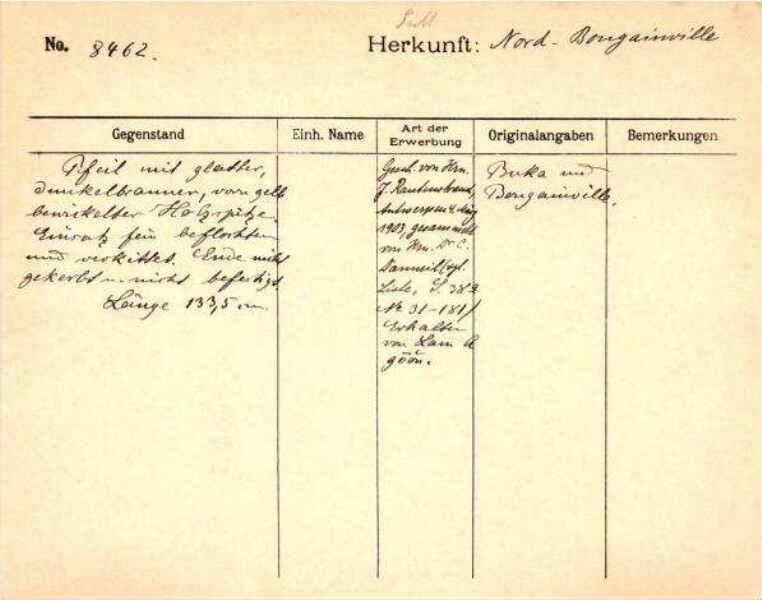 No. 8462.
Herkunft: Nord-Bougainville
Gegenstand
Einh. Name
Art der Erwerbung
Originalangaben
Bemerkungen
Pfeil mit glatter,
dunkelbrauner, vorn gelb
bewickelter Holzspitze.
Einsatz fein beflochten
und verkittet. Ende nicht
gekerbt u. nicht befestigt.
Länge 133,5 cm.
Gesch. von Hrn.
J. Rautenstrauch,
Antwerpen 4. März
1903, gesammelt
von Hrn. Dr. C.
Liste, S. 382
No 01-181/
Erhalten
von
Buka und
Bougainville.